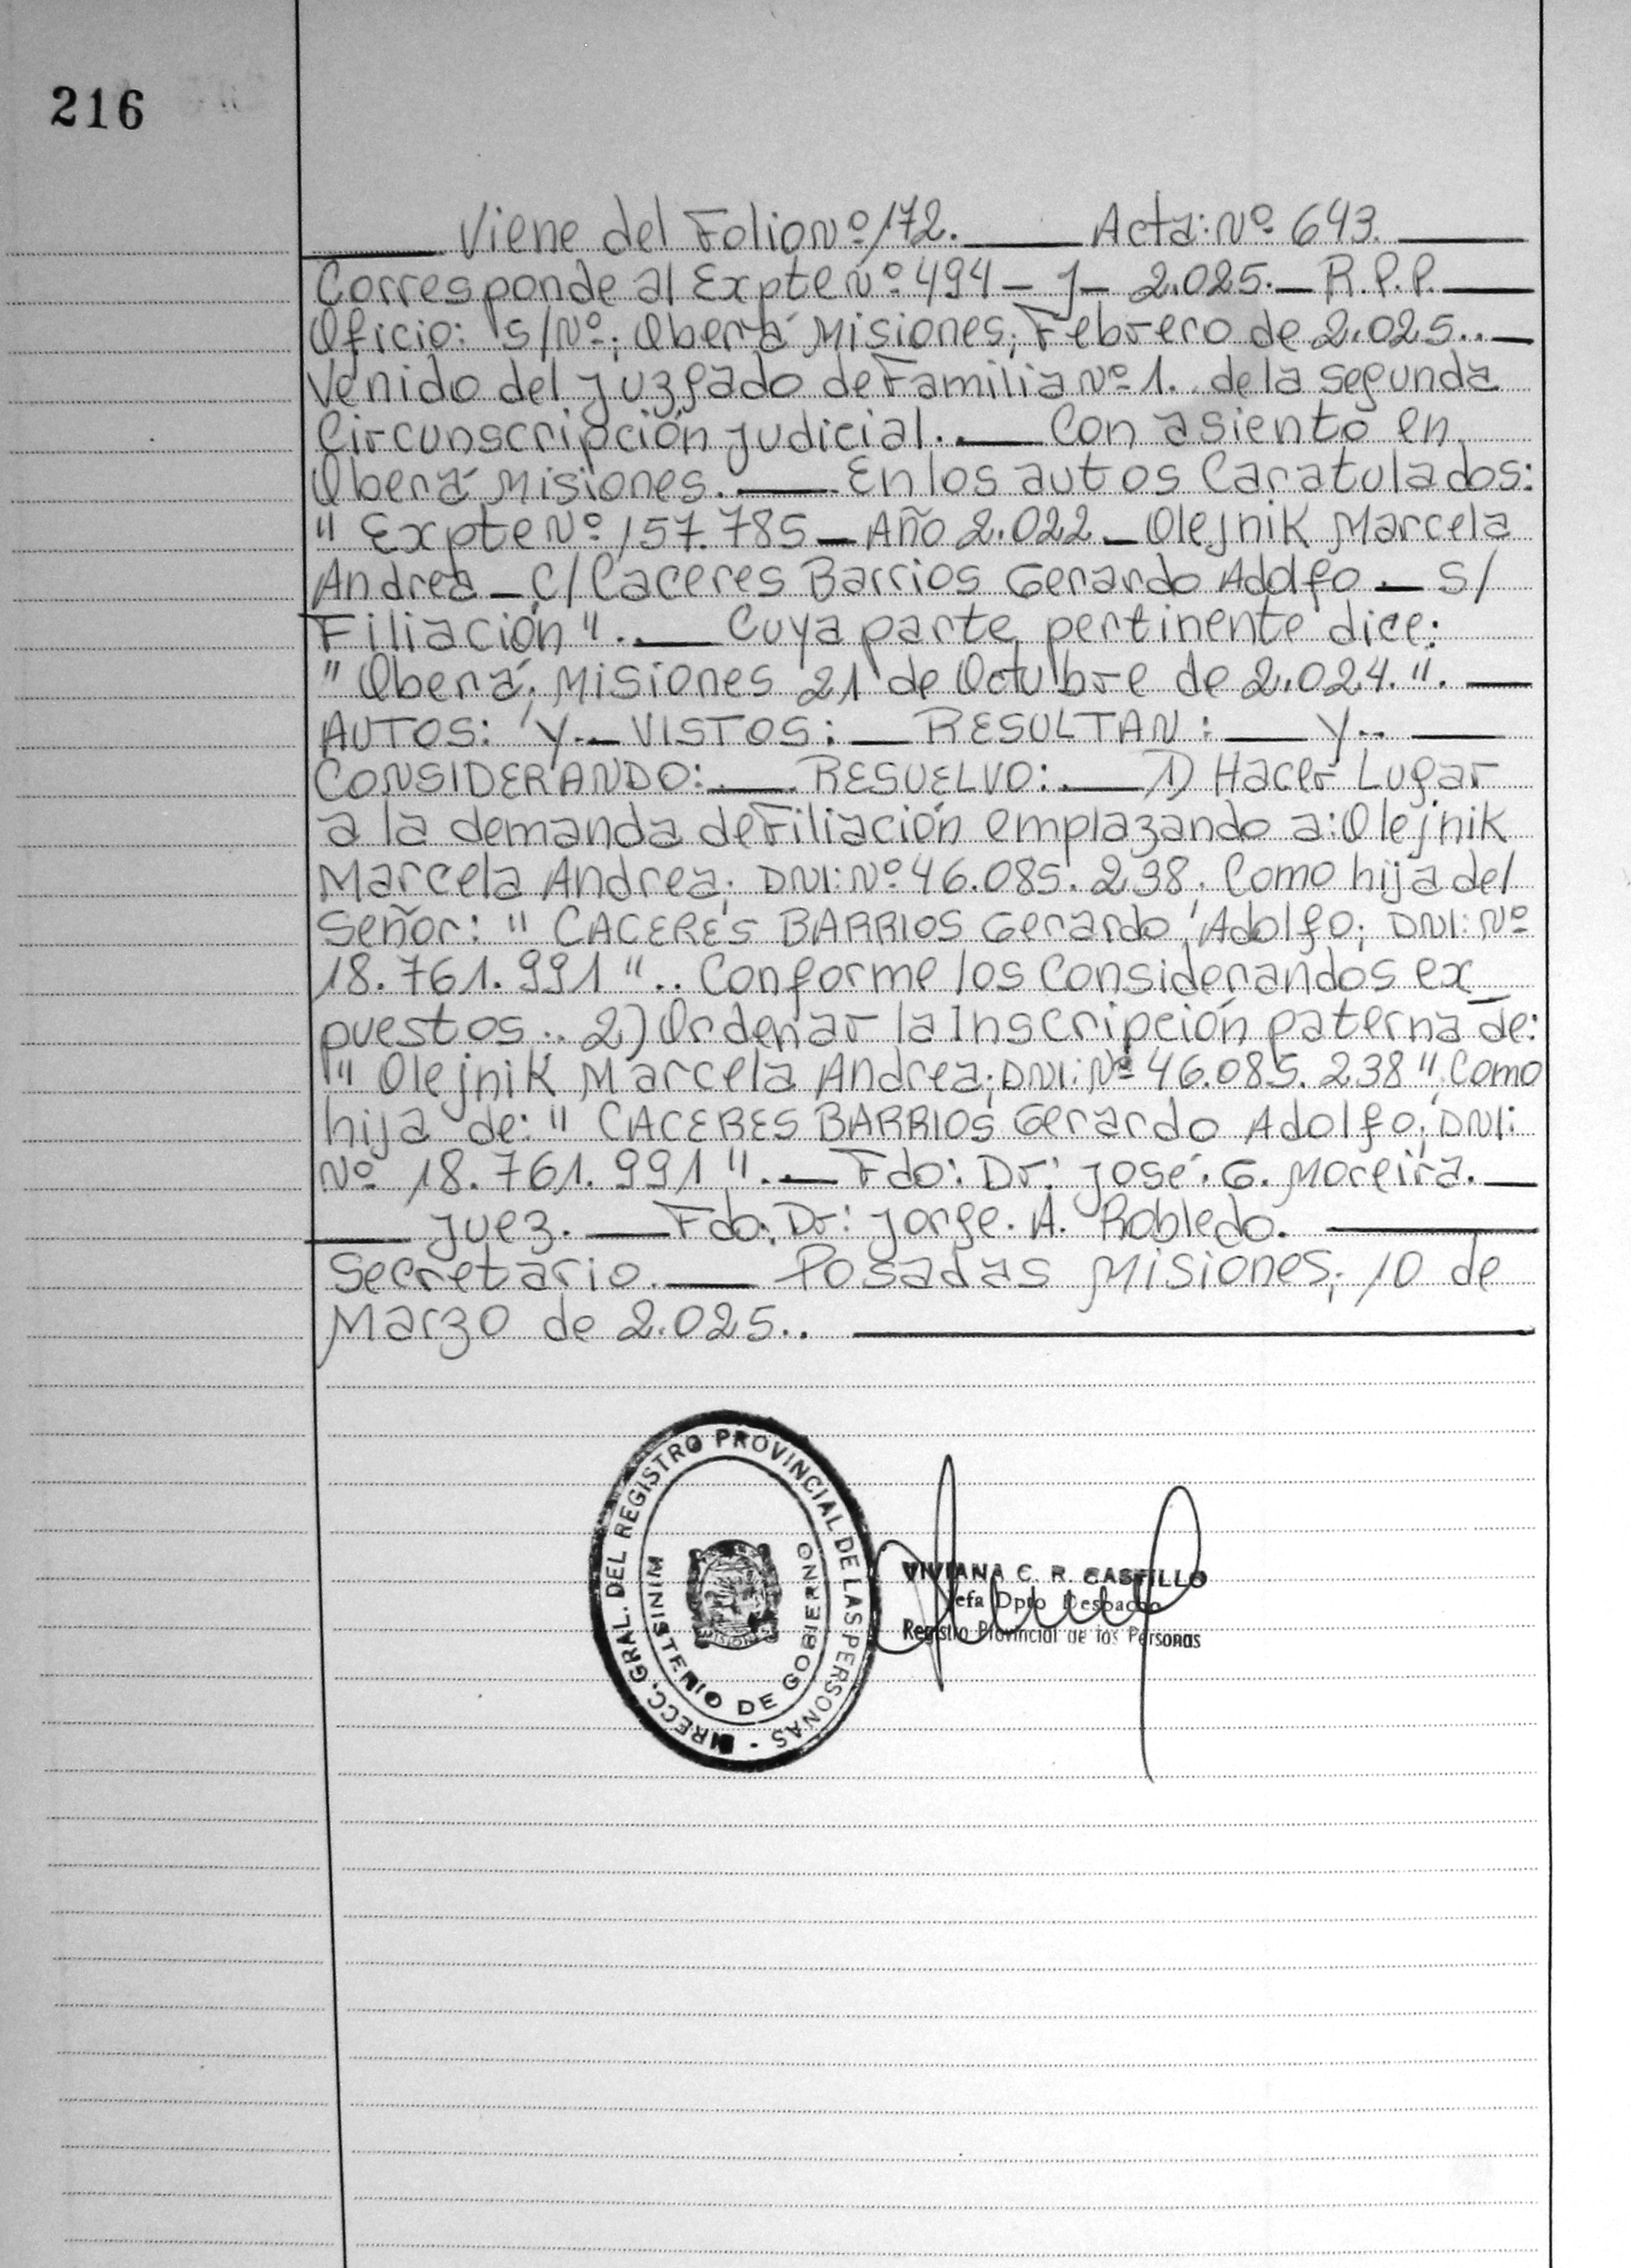 216
Viene del Folio Nº 172. Acta: Nº 643.
Corresponde al Expte Nº 494 - J - 2.025. R.P.P.
Oficio: S/Nº; Oberá Misiones; Febrero de 2.025..
Venido del Juzgado de Familia Nº 1. de la segunda
Circunscripción Judicial.. Con asiento en
Oberá Misiones. En los autos Caratulados:
" Expte Nº 157.785 - Año 2.022 - Olejnik Marcela
Andrea - C/ Caceres Barrios Gerardo Adolfo - S/
Filiación ".. Cuya parte pertinente dice:
" Oberá; Misiones 21 de Octubre de 2.024. ".
AUTOS: Y.. VISTOS: RESULTAN: Y..
CONSIDERANDO: RESUELVO: 1) Hacer Lugar
a la demanda de Filiación emplazando a: Olejnik
Marcela Andrea; DNI: Nº 46.085.238; Como hija del
Señor: " CACERES BARRIOS Gerardo Adolfo; DNI: Nº
18.761.991 ".. Conforme los Considerandos ex_
puestos.. 2) Ordenar la Inscripción paterna de:
" Olejnik Marcela Andrea; DNI: Nº 46.085.238 "; Como
hija de: " CACERES BARRIOS Gerardo Adolfo; DNI:
Nº 18.761.991 ". Fdo: Dr: José. G. Moreira.
Juez. Fdo: Dr: Jorge. A. Robledo.
Secretario. Posadas Misiones; 10 de
Marzo de 2.025..
DIRECC. GRAL. DEL REGISTRO PROVINCIAL DE LAS PERSONAS -
MINISTERIO DE GOBIERNO
VIVIANA C. R. CASTILLO
Jefa Dpto Despacho
Registro Provincial de las Personas